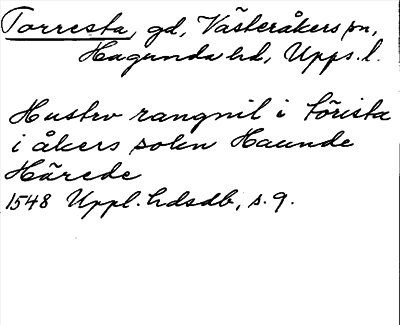 Torresta, gd, Västeråkers sn,
Hagunda hd, Upps. l.
Hustrv rangnil i Törista
i åkers sokn Haunde
Härede
1548 Uppl. hdsdb, s. 9.